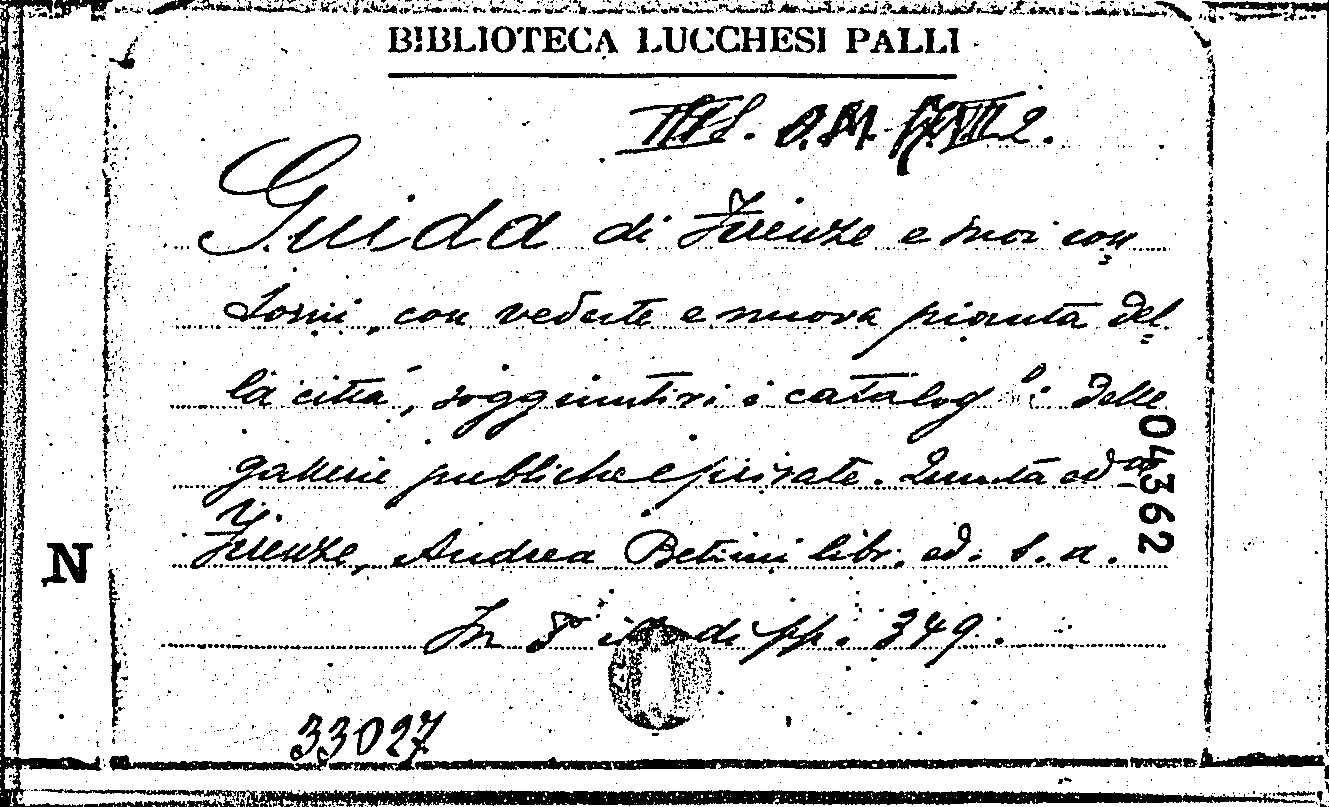 BIBLIOTECA LUCCHESI PALLI
Guida di Firenze e suoi con
torni, con vedute e nuova pianta del
la città, soggiuntivi i cataloghi delle
gallerie pubbliche e private. Quinta ed
Firenze, Andrea Bettini libr. ed. s. a.
In 8° di pp. 349.
33027
N
04362